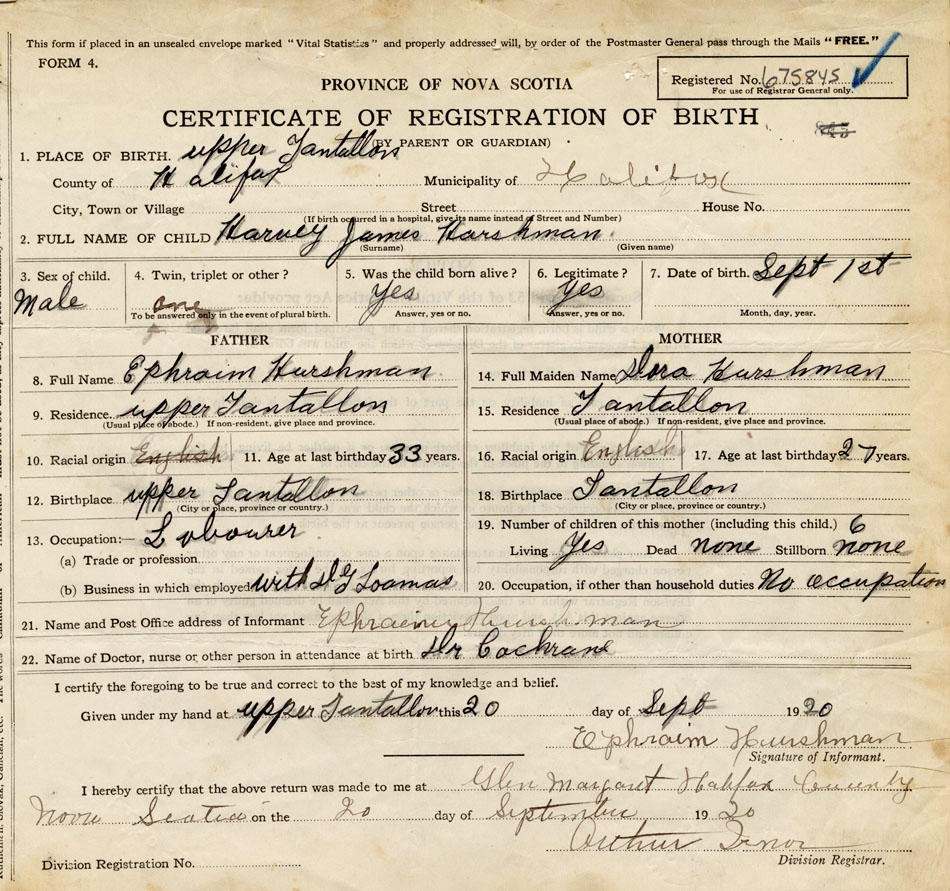 This form if placed in an unsealed envelope marked "Vital Statistics" and properly addressed will, by order of the Postmaster General pass through the Mails "FREE."
FORM 4.
Registered No. 675845
For use of Registrar General only.
PROVINCE OF NOVA SCOTIA
CERTIFICATE OF REGISTRATION OF BIRTH
(BY PARENT OR GUARDIAN)
1. PLACE OF BIRTH. upper Tantallon
County of Halifax Municipality of Halifax
City, Town or Village Street House No.
(If birth occurred in a hospital, give its name instead of Street and Number)
2. FULL NAME OF CHILD Harvey James Harshman
(Surname) (Given name)
3. Sex of child. 4. Twin, triplet or other? 5. Was the child born alive? 6. Legitimate? 7. Date of birth. Sept 1st
Male one Yes Yes
To be answered only in the event of plural birth. Answer, yes or no. Answer, yes or no. Month, day, year.
FATHER MOTHER
8. Full Name Ephraim Hurshman 14. Full Maiden Name Dora Hurshman
9. Residence. upper Tantallon 15. Residence Tantallon
(Usual place of abode.) If non-resident, give place and province. (Usual place of abode.) If non-resident, give place and province.
10. Racial origin English 11. Age at last birthday 33 years. 16. Racial origin English 17. Age at last birthday 27 years.
12. Birthplace upper Tantallon 18. Birthplace Tantallon
(City or place, province or country.) (City or place, province or country.)
13. Occupation:— Labourer 19. Number of children of this mother (including this child.) 6
(a) Trade or profession Living Yes Dead none Stillborn none
(b) Business in which employed with 20. Occupation, if other than household duties No occupation
21. Name and Post Office address of Informant Ephraim Hurshman
22. Name of Doctor, nurse or other person in attendance at birth Dr Cochrane
I certify the foregoing to be true and correct to the best of my knowledge and belief.
Given under my hand at upper Tantallon this 20 day of Sept 1920
Ephraim Hurshman
Signature of Informant.
I hereby certify that the above return was made to me at Glen Margaret Halifax County
Nova Scotia on the 20 day of September 1920
Arthur
Division Registration No. Division Registrar.